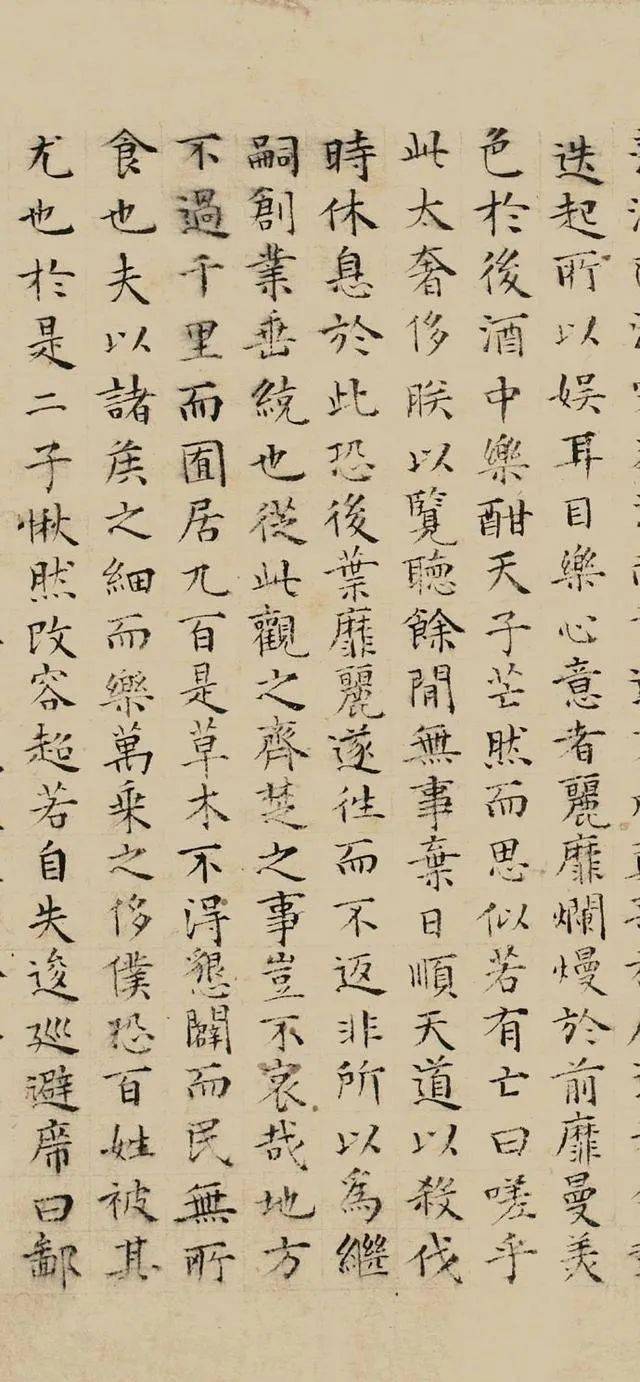 迭起所以娛耳目樂心意者麗靡爛熳於前靡曼美
色於後酒中樂酣天子芒然而思似若有亡曰嗟乎
此太奢侈朕以覽聽餘閒無事棄日順天道以殺伐
時休息於此恐後葉靡麗遂往而不返非所以為繼
嗣創業垂統也從此觀之齊楚之事豈不哀哉地方
不過千里而囿居九百是草木不得懇闢而民無所
食也夫以諸侯之細而樂萬乘之侈僕恐百姓被其
尤也於是二子愀然改容超若自失逡巡避席曰鄙